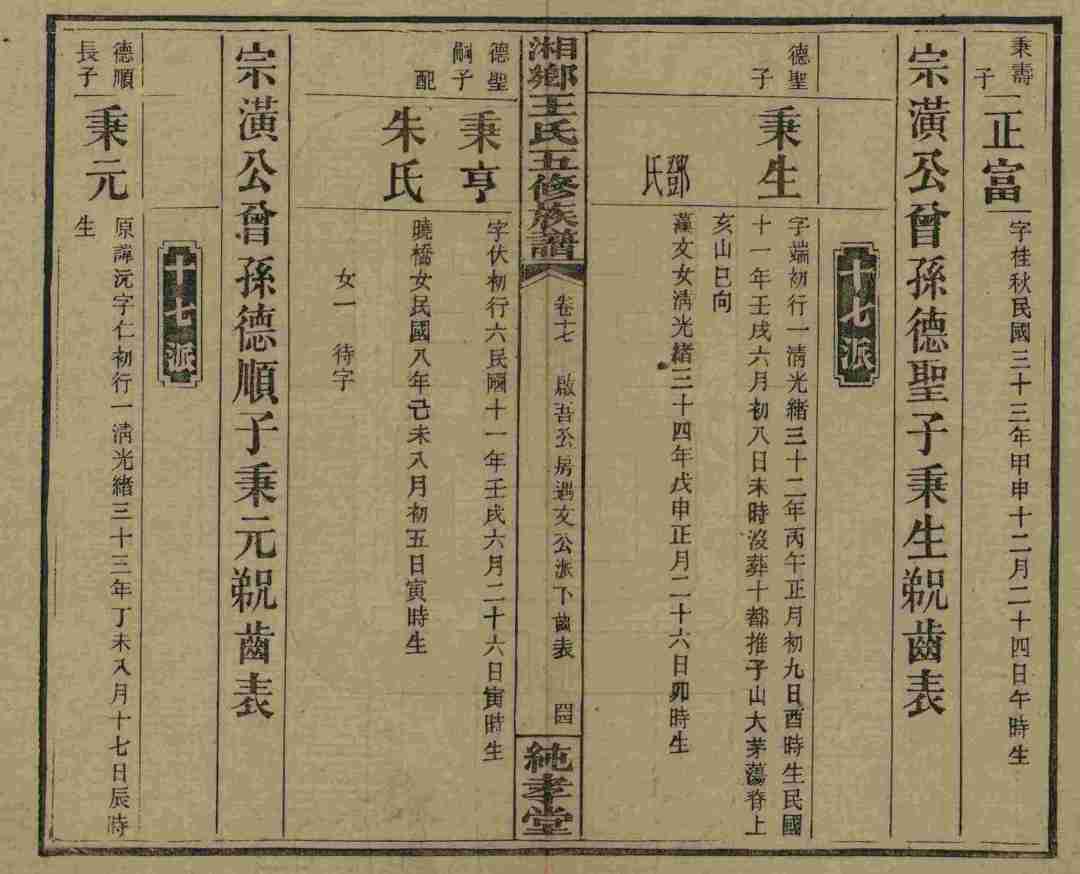 秉壽子
正富
字桂秋民國三十三年甲申十二月二十四日午時生
宗潢公曾孫德聖子秉生覜齒表
十七派
德聖子
秉生
字端初行一清光緒三十二年丙午正月初九日酉時生民國
十一年壬戌六月初八日未時沒葬十都推子山大茅蕩脊上
亥山巳向
鄧氏
漢文女清光緒三十四年戊申正月二十六日卯時生
湘鄉王氏五修族譜
卷十七 啟吾公房遇文公派下齒表 四
純孝堂
德聖嗣子
秉亨
字伏初行六民國十一年壬戌六月二十六日寅時生
配
朱氏
曉橋女民國八年己未八月初五日寅時生
女一 待字
宗潢公曾孫德順子秉元覜齒表
十七派
德順長子
秉元
原諱沅字仁初行一清光緒三十三年丁未八月十七日辰時
生